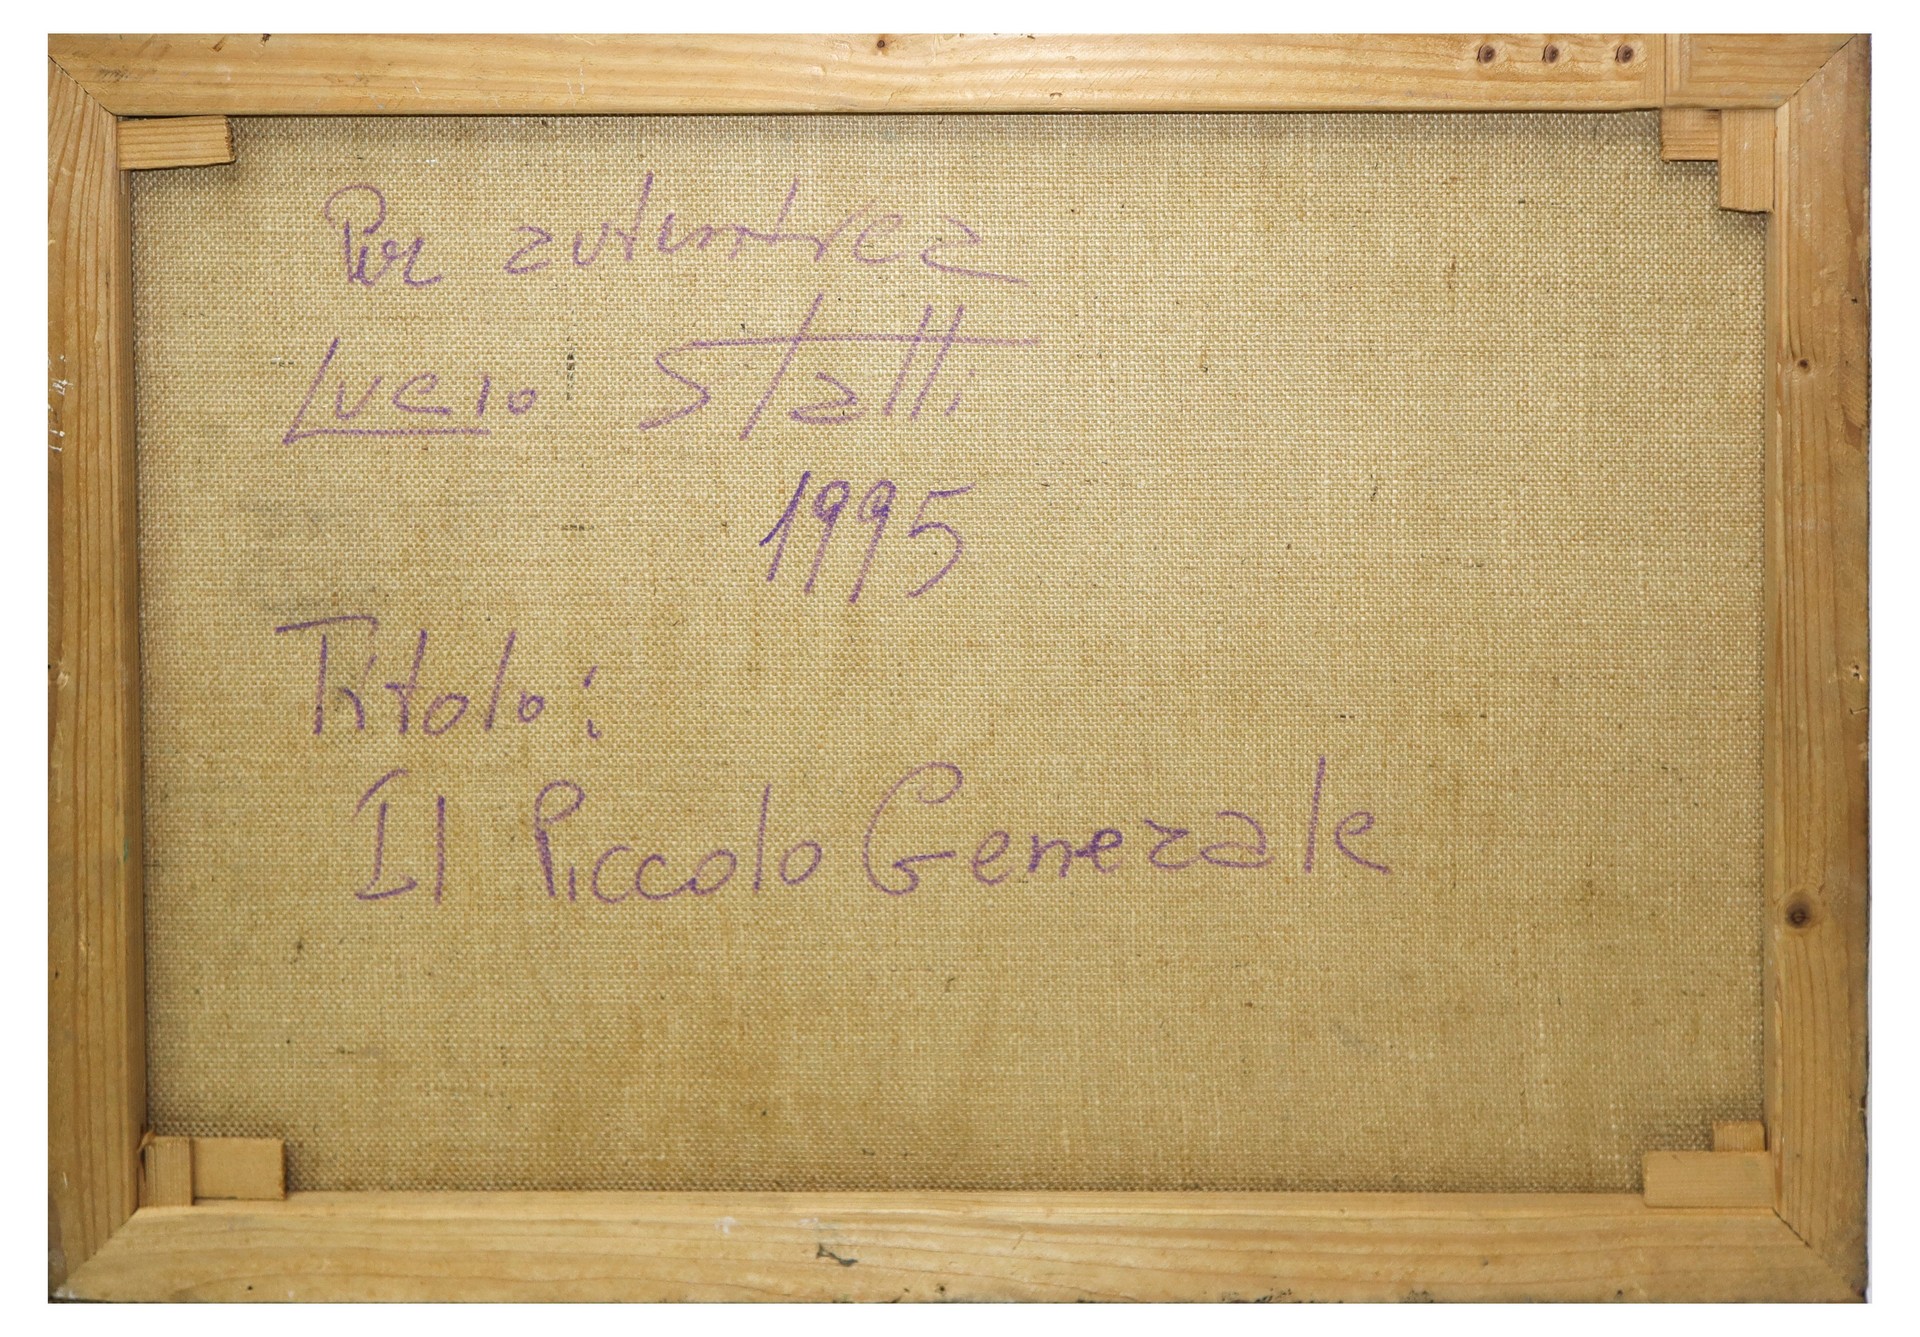 Per autentica
Lucio Statti
1995
Titolo:
Il Piccolo Generale